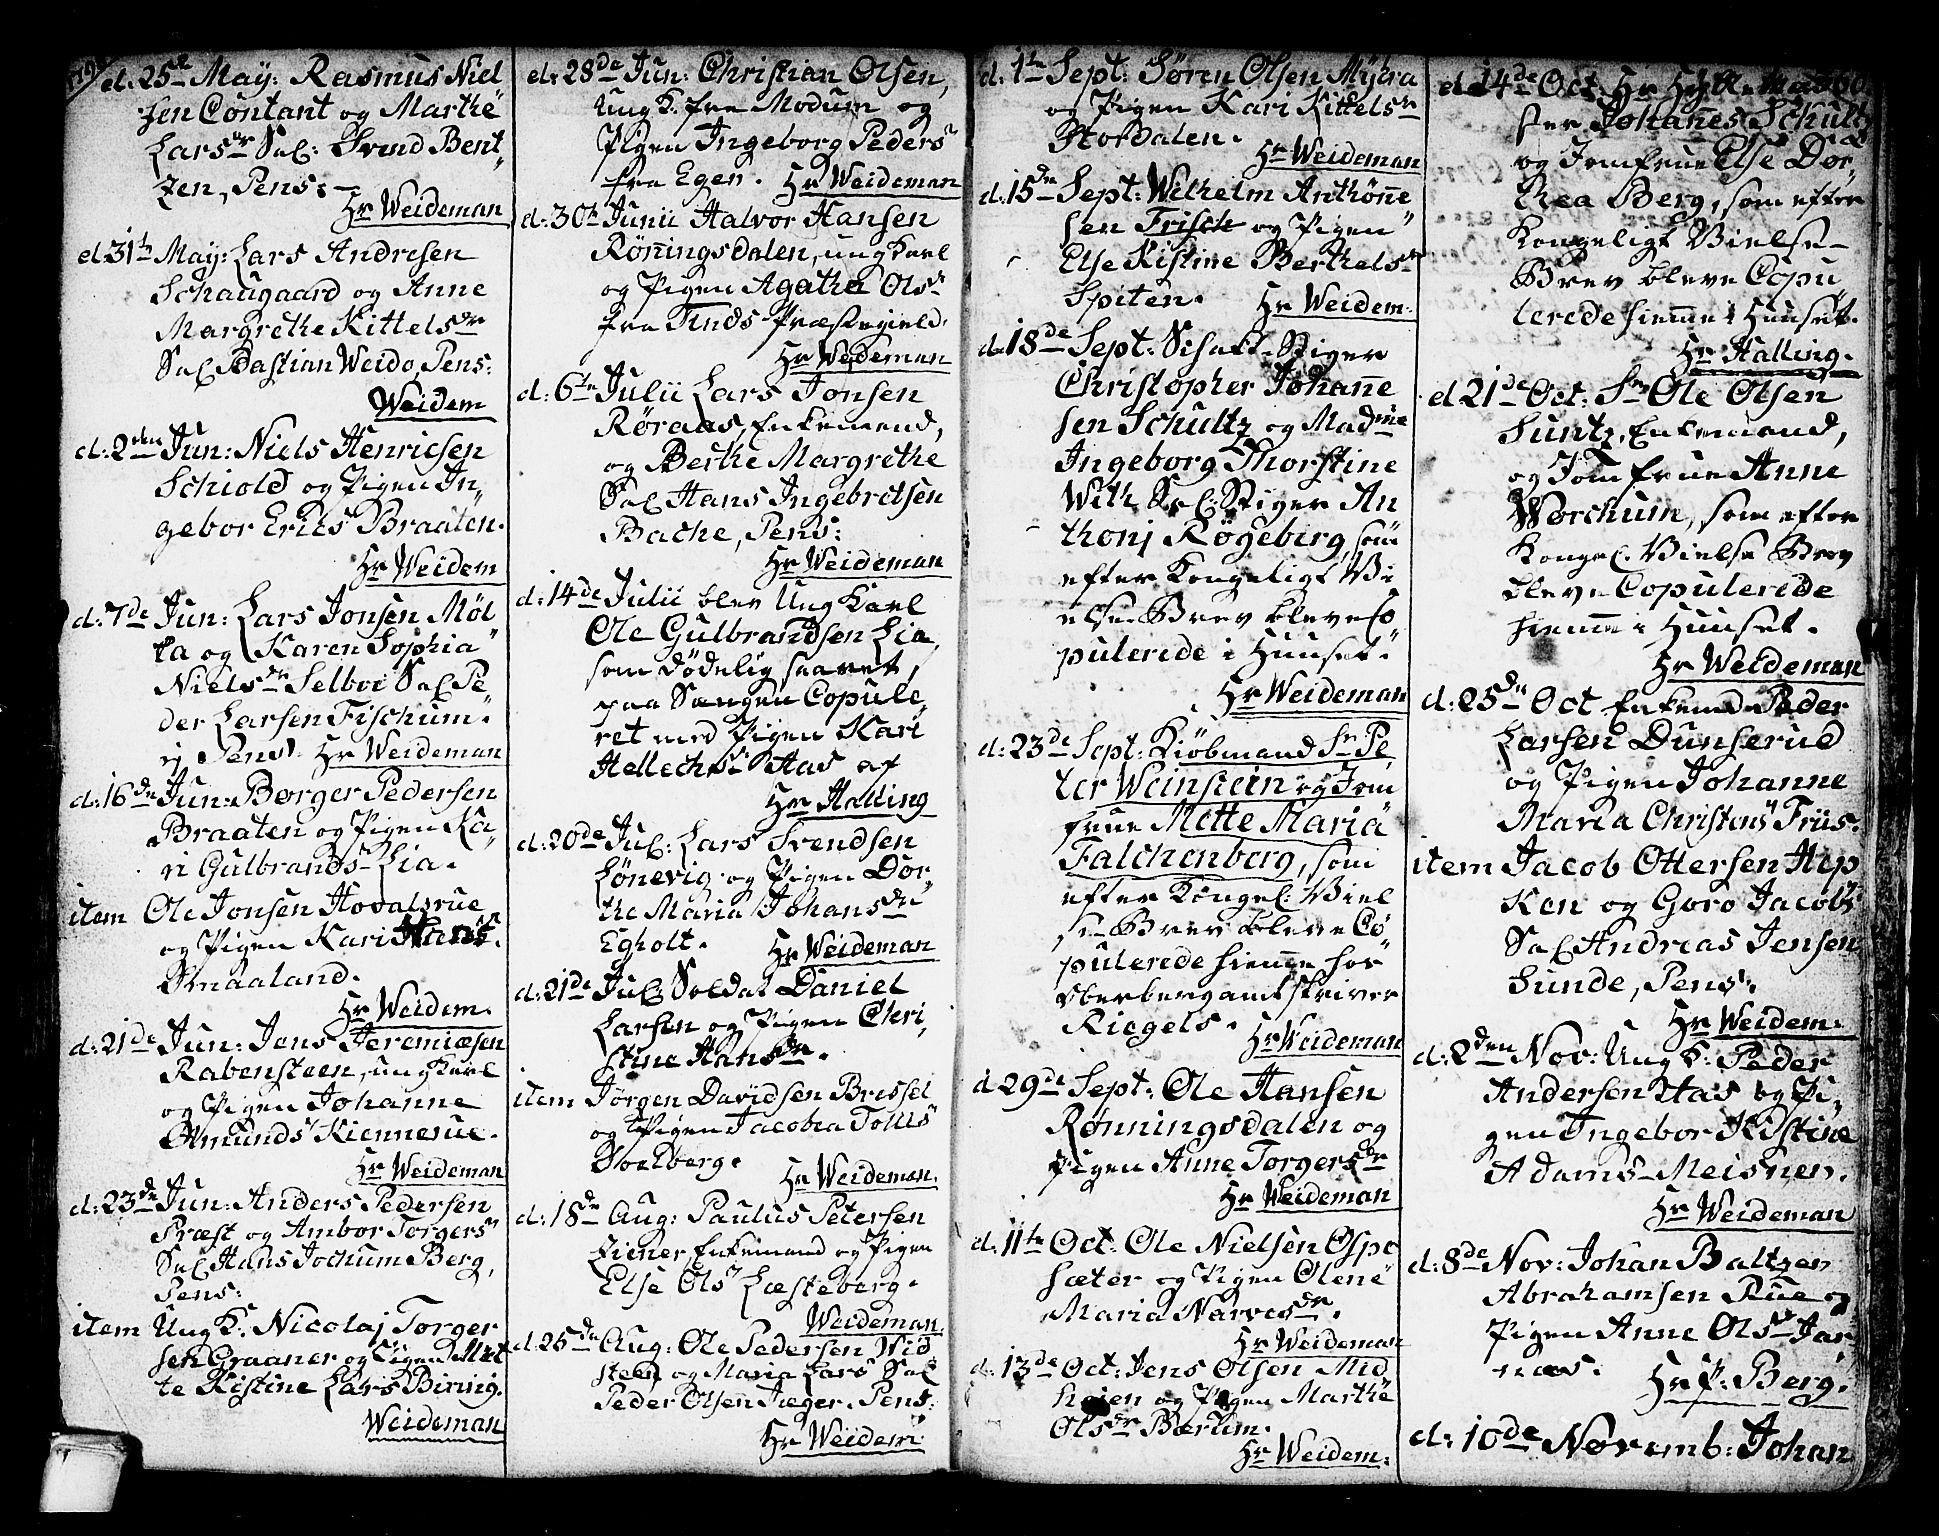 d: 25t May: Rasmus Niel
sen Contant og Marthe
Larsdr Sal: Svend Bent
zen, Pens: —
Hr Weideman
d 31te May: Lars Andresen
Schaugaard og Anne
Margrethe Kittelsdr
Sal Bastian Weido, Pens:
Weidem
d: 2den Jun: Niels Henricsen
Schiold og Pigen In
gebor Erics Braaten.
Hr Weidem
d: 7de Jun: Lars Jonsen Møl
ta og Karen Sophia
Nielsdr Selboe Sal Pe
der Larsen Fischum
Pens. Hr Weideman
d: 16de Jun: Børger Pedersen
Braaten og Pigen Ka
ri Gulbrands Lia.
item Ole Jonsen Hovalsrue
og Pigen Kari Hans
Smaaland.
Hr Weidem.
d: 21de Jun: Jens Jeremiæsen
Rabensteen, ung Karl
og Pigen Johanne
Amunds Kiennerue.
Hr Weideman
d: 23de Jun: Anders Pedersen
Præst og Ambor Torgers
Sal Hans Jochum Berg,
Pens:
item Ung K. Nicolaj Torger
sen Graaner og Pigen Met
te Kistine Lars Biring.
Weideman
d: 28de Jun: Christian Olsen,
Ung K. fra Modum og
Pigen Ingeborg Peders
fra Egen. Hr Weideman
d: 30te Junii Halvor Hansen
Rønningsdalen, ung Karl
og Pigen Agathe Ols
fra Finds Præstegield.
Hr Wedeman
d: 6te Julii Lars Jonsen
Røraas, Enkemand,
og Berthe Margrethe
Sal Hans Ingebretsen
Bache, Pens:
Hr Weideman
d: 14de Julii blev Ung Karl
Ole Gulbrandsen Lia,
som dødelig saaret,
paa Sængen Copule
ret med Pigen Kari
Hellechs Aas af
Hr Halling
d: 20de Jul: Lars Svendsen
Lønevig og Pigen Dor
the Maria Johansdr
Egholt. Hr Weideman
d: 21de Jul Soldat Daniel
Larsen og Pigen Chri
stine Hansdr.
item Jørgen Davidsen Bressel
og Pigen Jacobea Tolles
Stolberg.
Hr Weideman.
d: 18de Aug: Paulus Petersen
Ziener, Enkemand og Pigen
Else Ols Læsteberg.
Weideman
d: 25de Aug: Ole Pedersen Wid
steen og Maria Lars Sal
Peder Olsen Jæger. Pens:
Hr Weidem
d. 1te Sept: Søren Olsen Myhra
og Pigen Kari Kittelsdr
Stofdalen.
Hr Weideman
d: 15de Sept: Wilhelm Anthonne
sen Frisch og Pigen
Else Kistine Berthelsdr
Spiten. Hr Weidem.
d. 18de Sept: Stiger
Christopher Johanne
sen Schultz og Madme
Ingeborg Thorstine
With Sal: Stiger An
thonj Røgeberg, som
efter Kongeligt Vi
else Brev bleve Co
pulerede i Huuset.
Hr Weideman
d: 23de Sept: Kiøbmand Sr Pe
ter Weinstein og Jom
frue Mette Maria
Falchenberg, som
efter Kongel: Viel
se Brev bleve Co
pulerede hiemme hos
Oberbergamtskriver
Riegels. Hr Weideman
d 29de Sept: Ole Hansen
Rønningsdalen og
Pigen Anne Torgersdr
Hr Weideman
d: 11te Oct: Ole Nielsen Ospe
sæter og Pigen Olene
Maria Narvesdr.
Hr Weideman
d. 13de Oct: Jens Olsen Mid
høien og Pigen Marthe
Olsdr Bærum.
Hr Weidem.
d 14de Oct Hr
ster Johannes Schultz
og Jomfrue Else Dor
thea Berg, som efter
Kongeligt Vielse
Brev bleve Copu
lerede hiemme i Huuset.
Hr Halling.
d 21de Oct: Sr Ole Olsen
Suntz, Enkemand,
og Jomfrue Anne
Worchum, som efter
Kongel. Vielse Brev
bleve Copulerede
hiemme i Huuset.
Hr Weideman
d: 25de Oct Enkemd Peder
Larsen Dunserud
og Pigen Johanne
Maria Christens Friis.
item Jacob Ottersen Hep
Ken og Goro Jacobs
Sal Andreas Jensen
Sunde, Pens:
Hr Weidem.
d: 2den Nov: Ung K. Peder
Andersen Aas og Pi
gen Ingebor Kistine
Adams Meisner.
Hr Weideman
d: 8de Nov: Johan Baltzer
Abrahamsen Rue og
Pigen Anne Ols Jar
næs. Hr P: Berg.
d: 10de Novemb: Johan